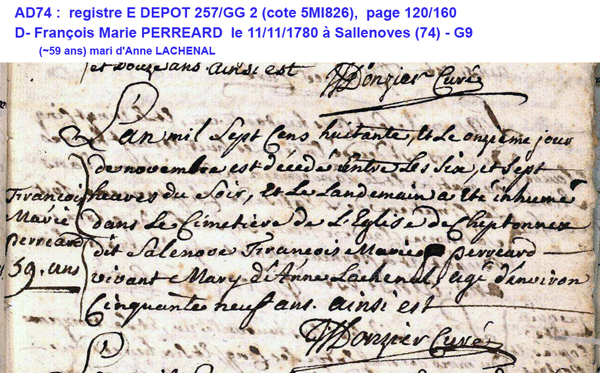 AD74 : registre E DEPOT 257/GG 2 (cote 5MI826), page 120/160
D- François Marie PERREARD le 11/11/1780 à Sallenoves (74) - G9
(~59 ans) mari d'Anne LACHENAL
et Douze ans ainsi est
MDonzier Curé
L'an mil Sept Cens huitante, et Le onzieme jour
de novembre est décédé entre Les Six et Sept
heures du Soir, et Le Landemain a été inhumé
dans Le Cimetière de L'Eglise de Cheptonnex
dit Salenove François Marie perreard
vivant Mary d'Anne Lachenal agé d'environ
Cinquante neuf ans. ainsi est
MDonzier Curé
François
Marie
perreard
59. ans